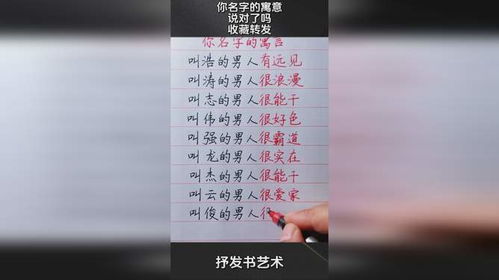 你名字的寓意
说对了吗
收藏转发
你名字的寓言
叫浩的男人有远见
叫涛的男人很浪漫
叫志的男人很能干
叫伟的男人很好色
叫强的男人很霸道
叫龙的男人很实在
叫杰的男人很能干
叫云的男人很爱家
叫俊的男人很
抒发书艺术